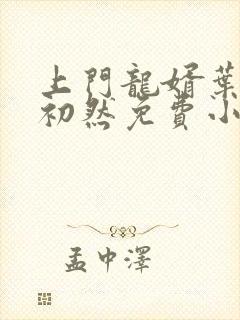 上門龍婿葉
初然免費小
孟中澤